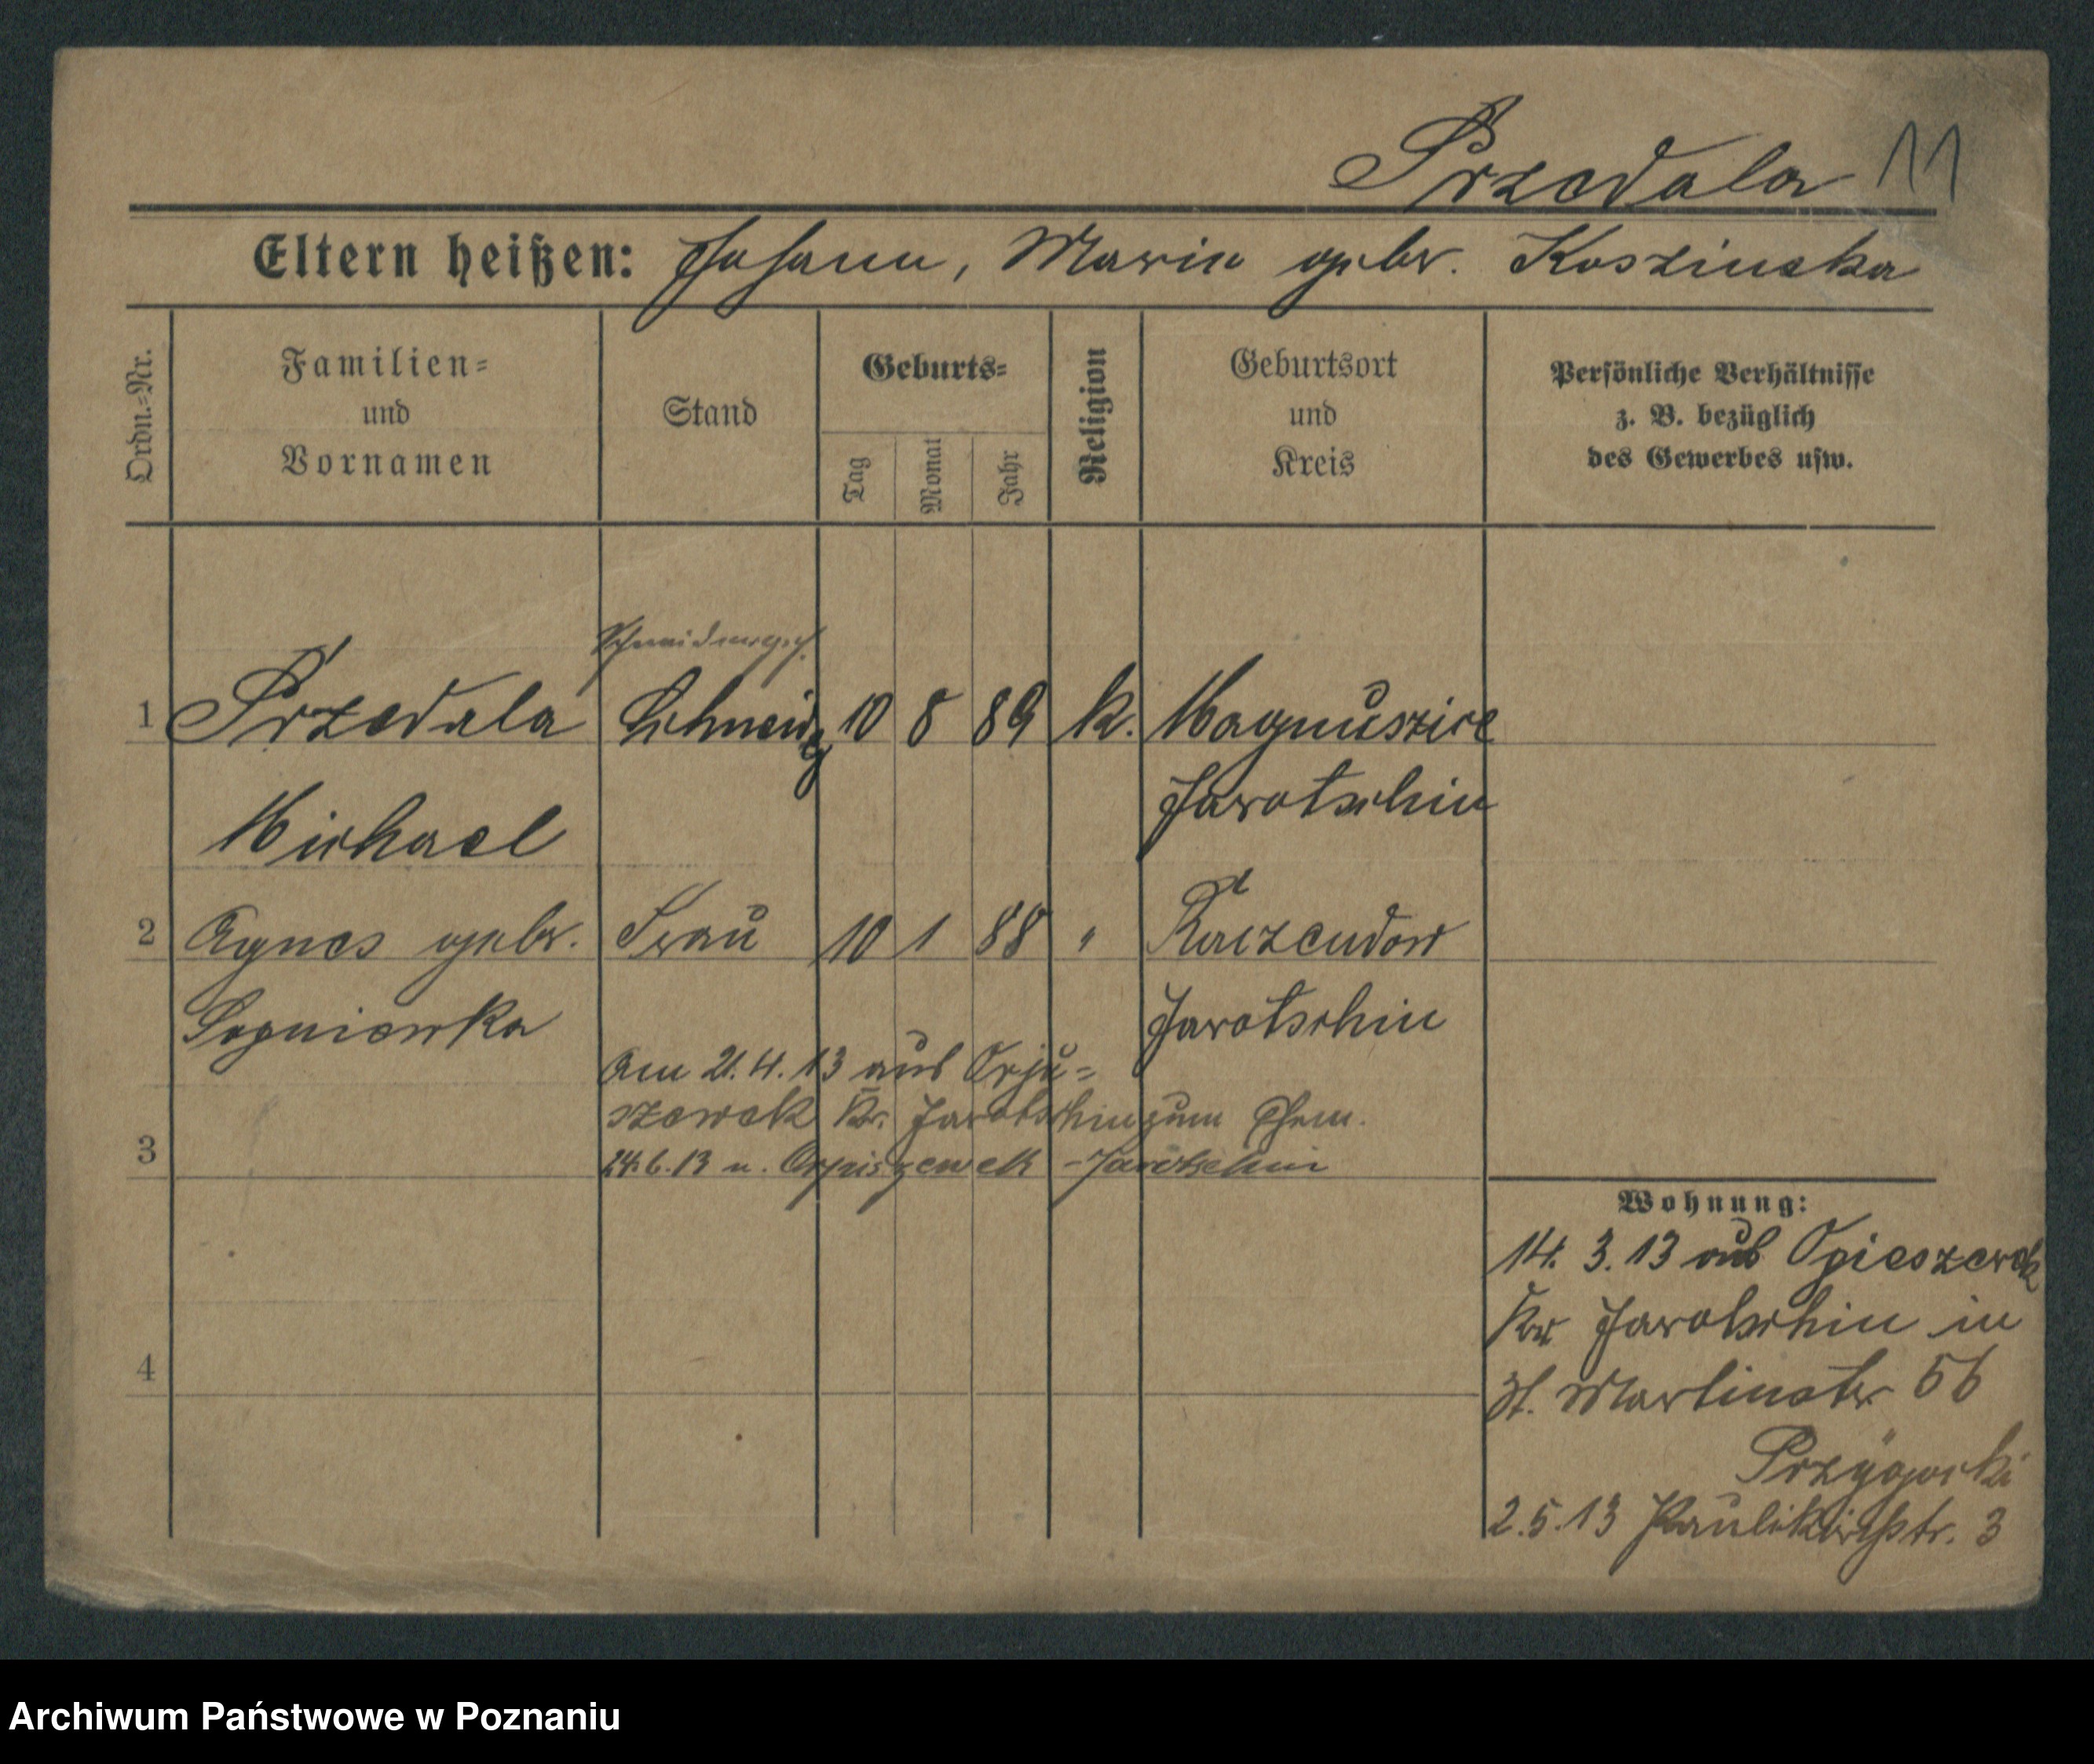 Przedala 11
Eltern heißen: Johann, Marie gebr. Koszinska
Ordn.=Nr.
Familien=
und
Vornamen
Stand
Geburts=
Tag
Monat
Jahr
Religion
Geburtsort
und
Kreis
Persönliche Verhältnisse
z. B. bezüglich
des Gewerbes usw.
Schneiderges.
1 Przedala Schneider 10 8 89 k. Magnuszice
Jarotschin
Michael
2 Agnes gebr. Frau 10 1 88 " Raczendorf
Jarotschin
Am 21.4.13 aus Orju=
szewek Kr. Jarotschin zum Ehem.
3
24.6.13 n. Orpiszewek - Jarotschin
Wohnung:
14. 3. 13 aus Opieszewek
Kr. Jarotschin in
St. Martinstr 56
4
2.5.13 Paulikirchstr. 3
Archiwum Państwowe w Poznaniu